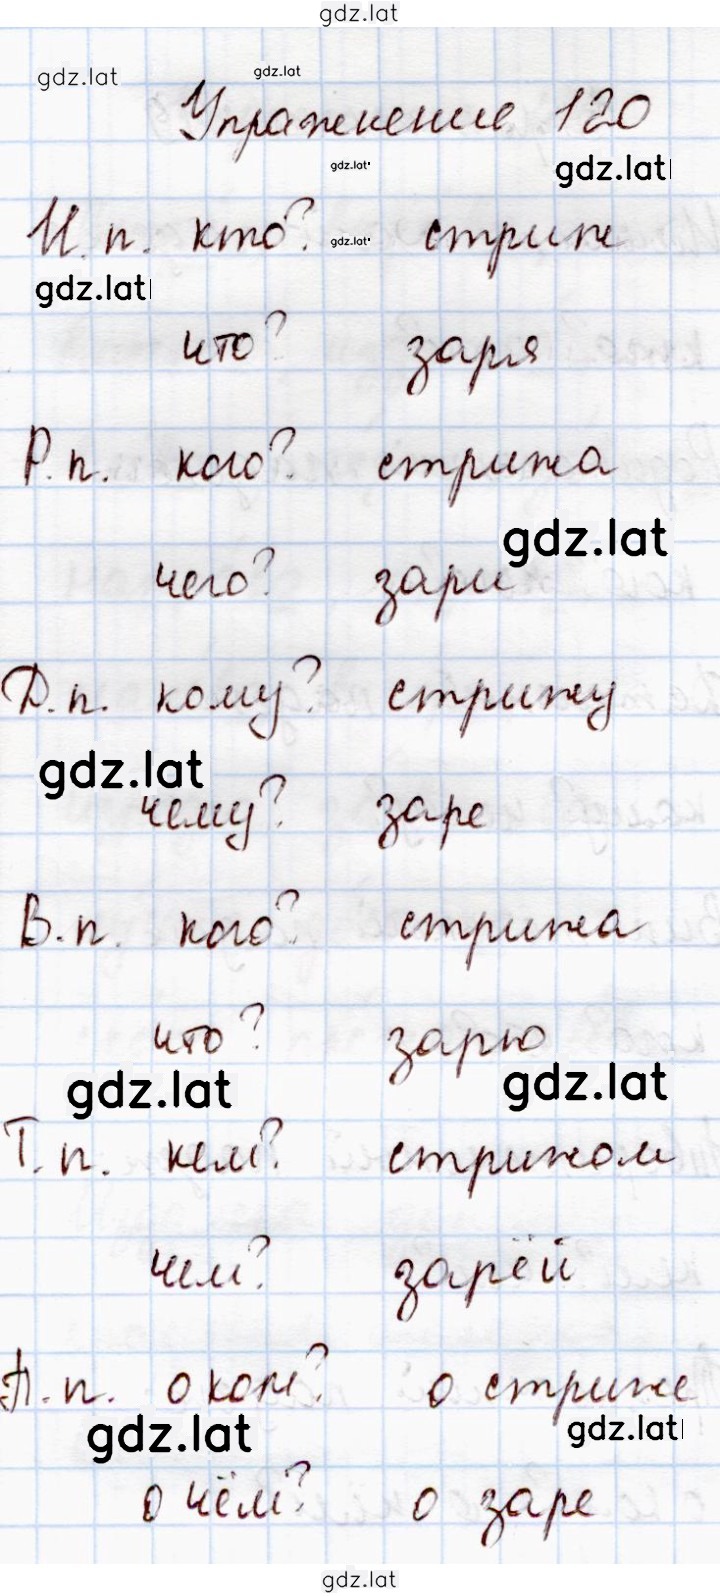 gdz.lat
gdz.lat gdz.lat
Упражнение 120
gdz.lat gdz.lat
И. п. кто? gdz.lat стриж
gdz.lat
что? заря
Р. п. кого? стрижа
gdz.lat
чего? зари
Д. п. кому? стрижу
gdz.lat
чему? заре
В. п. кого? стрижа
что? зарю
gdz.lat gdz.lat
Т. п. кем? стрижом
чем? зарёй
П. п. о ком? о стриже
gdz.lat gdz.lat
о чём? о заре
gdz.lat